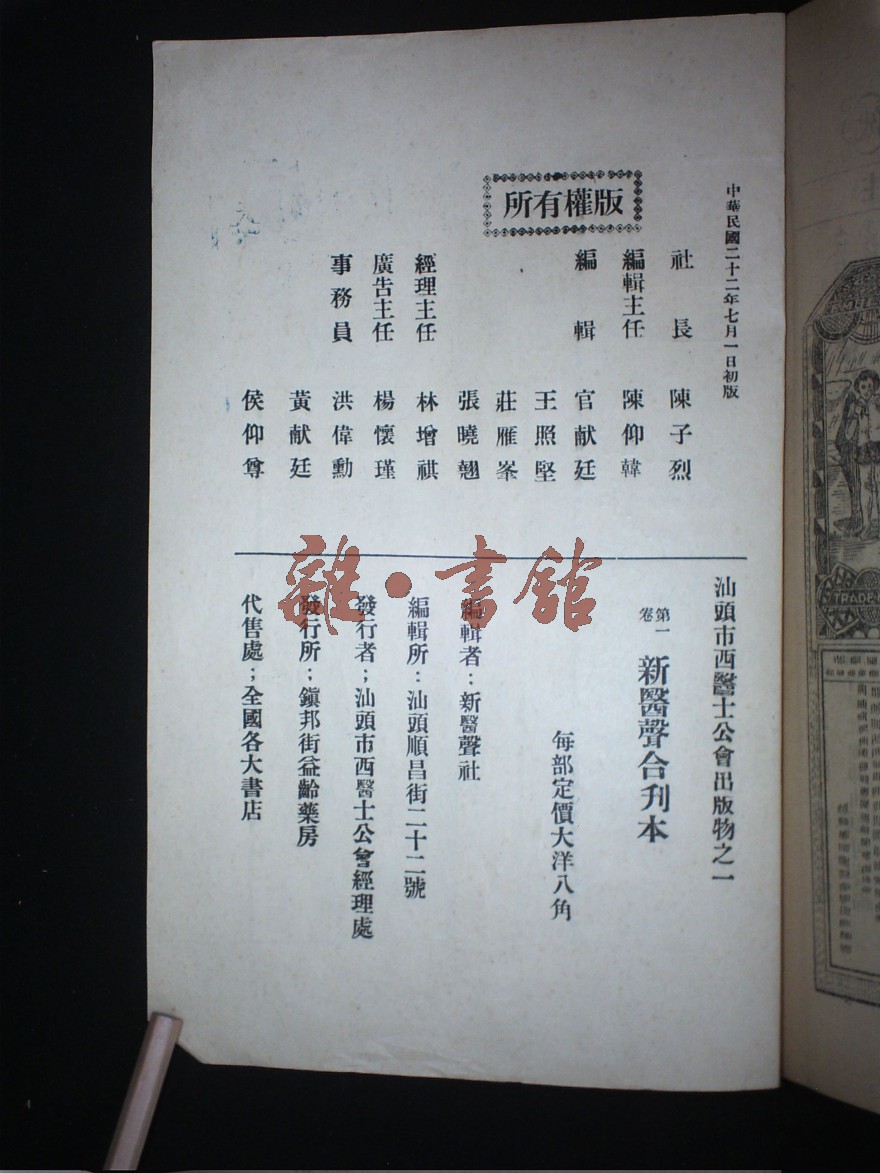 中華民國二十二年七月一日初版
所有權版
社長 陳子烈
編輯主任 陳仰韓
編輯 官献廷
王照堅
莊雁峯
張曉翹
經理主任 林增祺
廣告主任 楊懷瑾
事務員 洪偉勳
黃献廷
侯仰尊
汕頭市西醫士公會出版物之一
第一卷 新醫聲合刋本
每部定價大洋八角
編輯者：新醫聲社
編輯所：汕頭順昌街二十二號
發行者；汕頭市西醫士公會經理處
發行所；鎭邦街益齡藥房
代售處；全國各大書店
雜·書館
TRADE